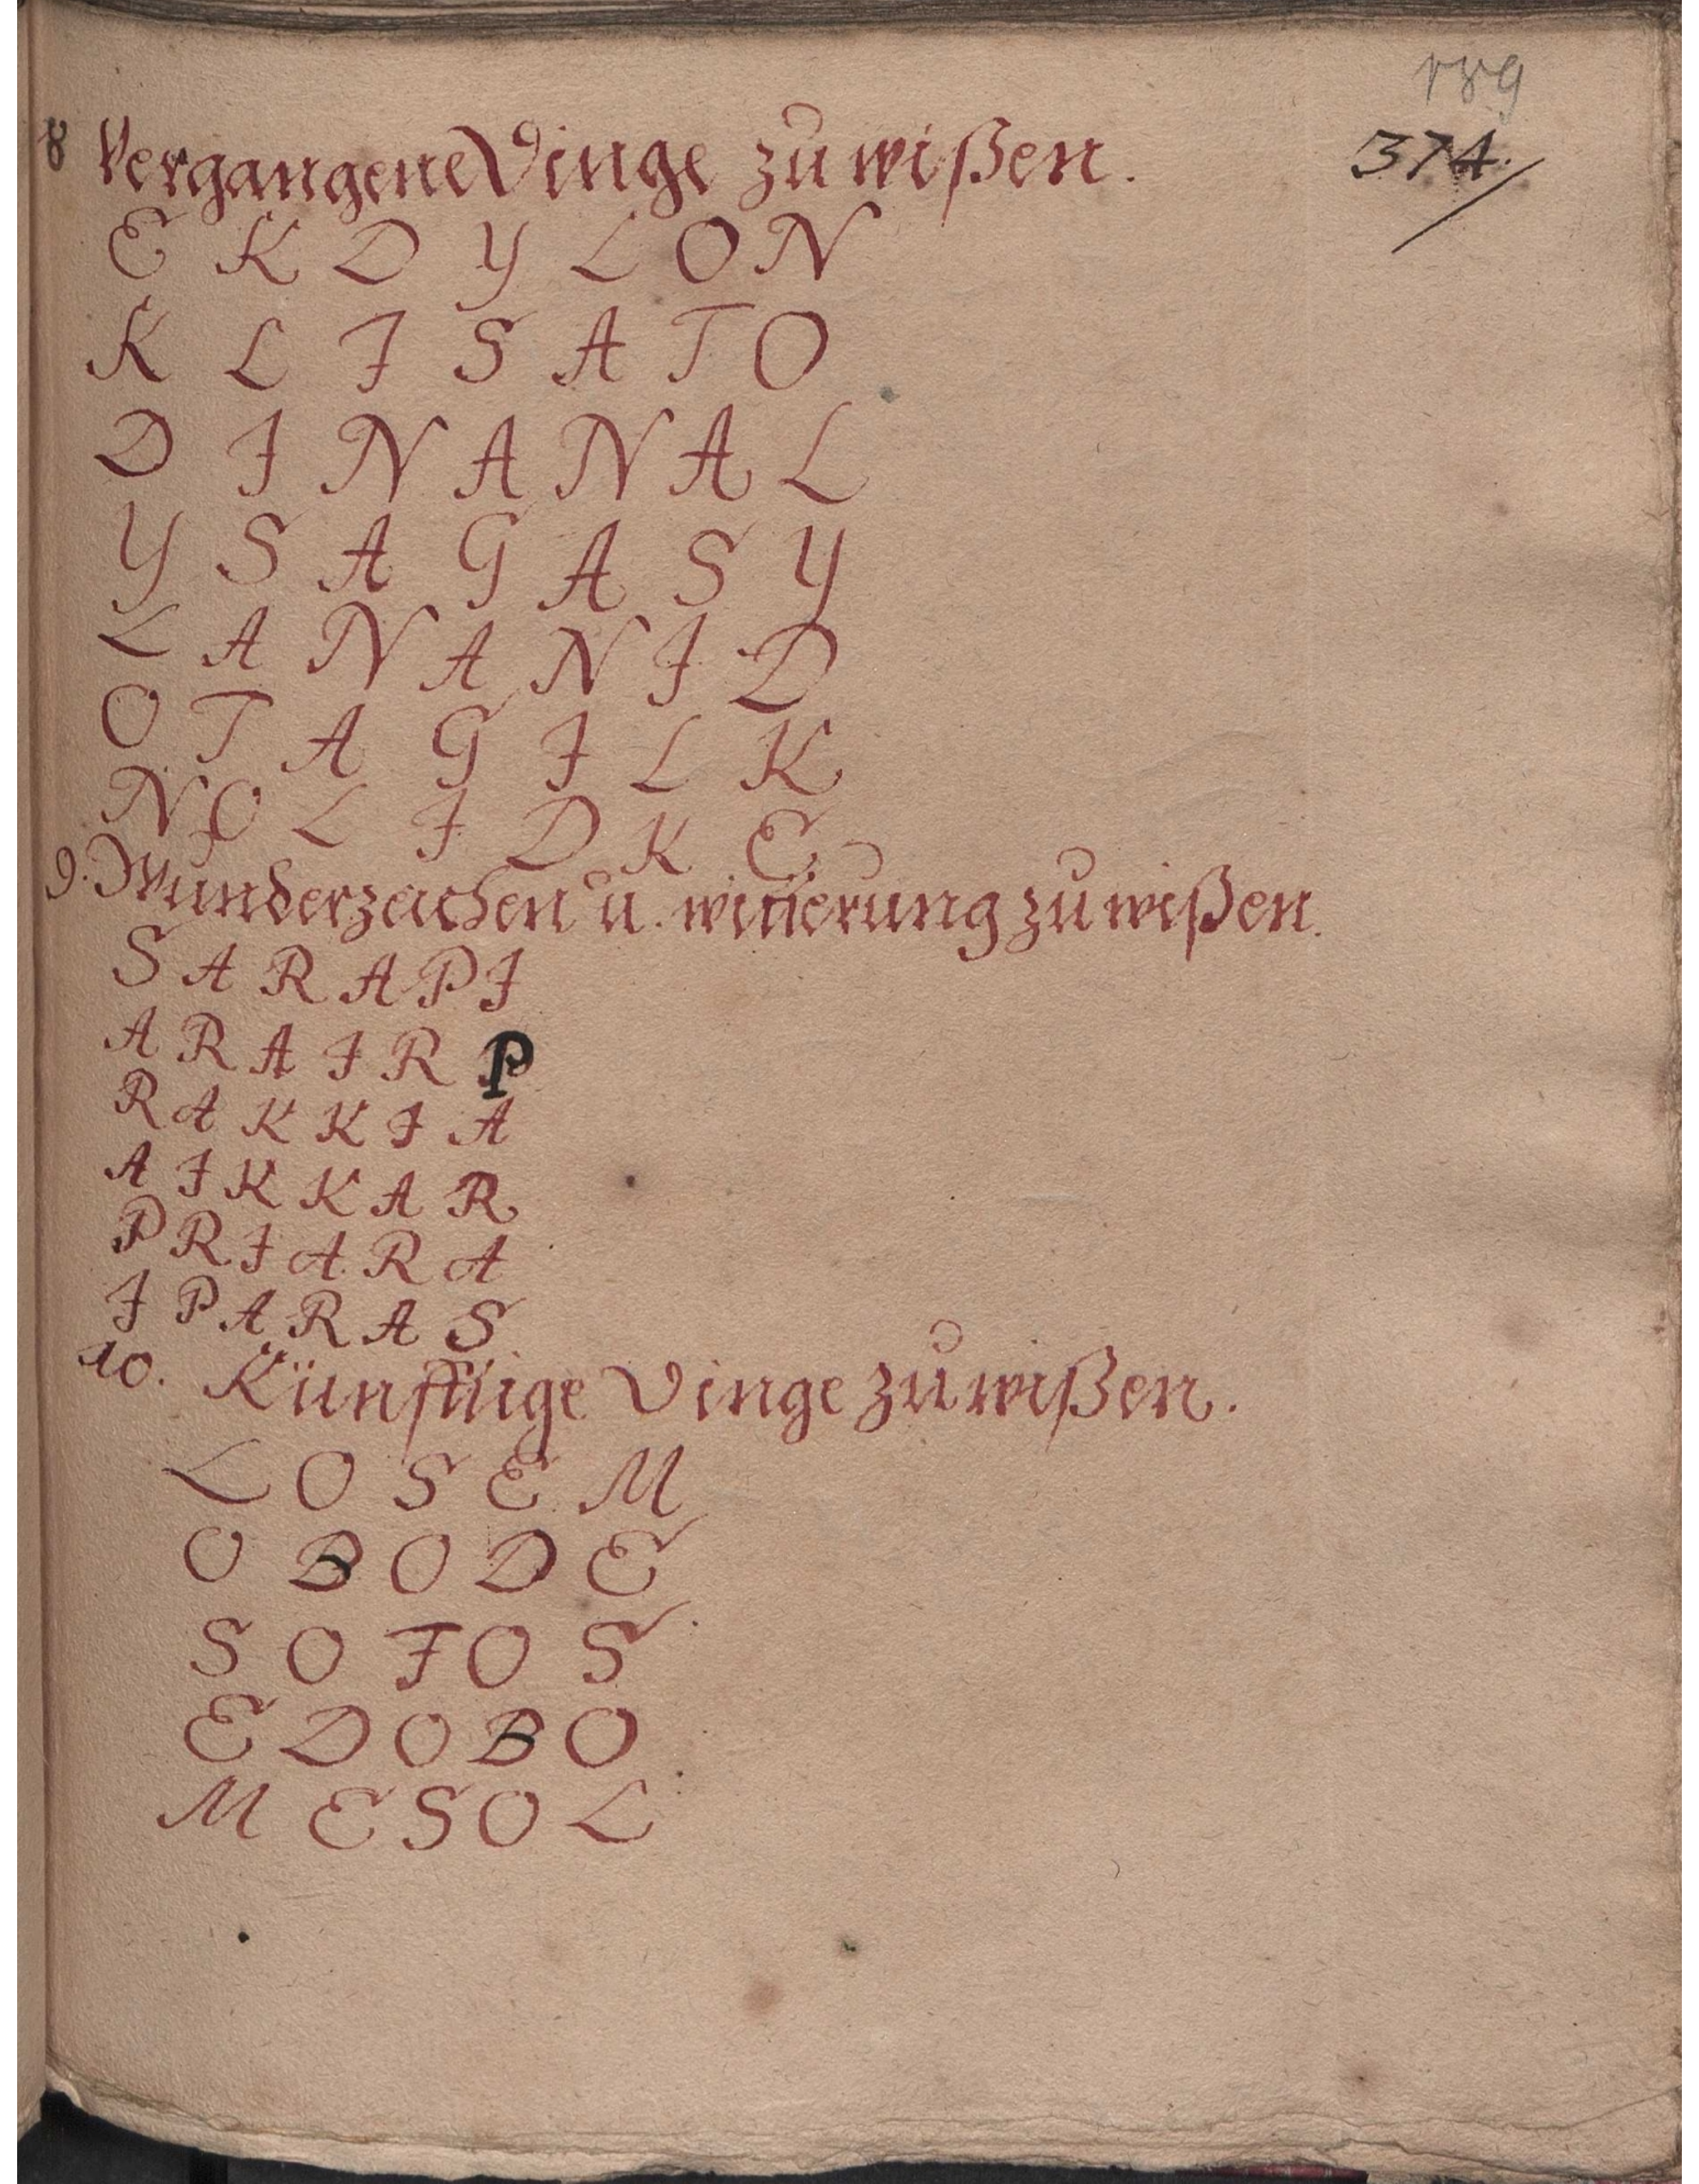 189
374.
8 Vergangene Dinge zu wißen.
E K D Y L O N
K L I S A T O
D I N A N A L
Y S A G A S Y
L A N A N I D
O T A G I L K
N O L I D K E
9. Wunderzeichen u. witterung zu wißen.
S A R A P I
A R A I R P
R A K K I A
A I K K A R
P R I A R A
I P A R A S
10. Künfftige Dinge zu wißen.
L O S E M
O B O D E
S O F O S
E D O B O
M E S O L